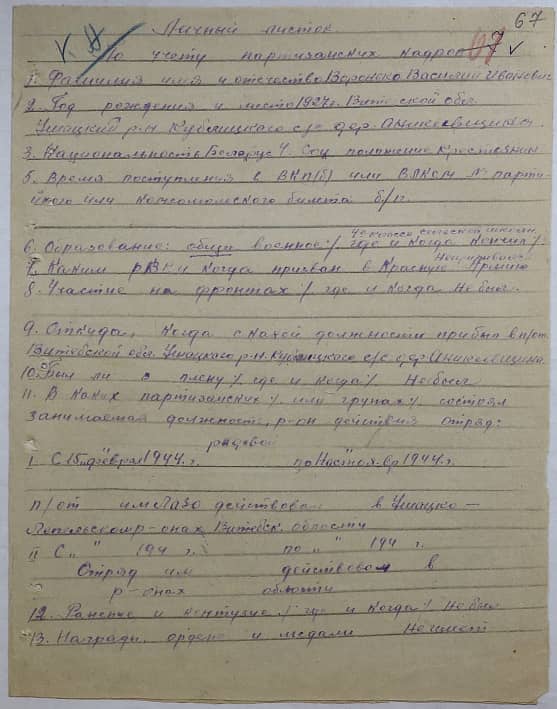 67
Личный листок
К
По учету партизанских кадров
1. Фамилия имя и отчество Воронько Василий Иванович
2. Год рождения и место 1927 г. Витебской обл.
Ушацкий р-н. Кублицкого с/с дер. Аникеевщина
3. Национальность Белорус 4. Соц положение Крестьянин
5. Время поступления в ВКП(б) или ВЛКСМ № парти-
йного или комсомольского билета б/п.
4 класса сельской школы
6. Образование: общи военное/. где и когда кончил/.
Непризывался
7. Каким РВК и когда призван в Красную Армию
8. Участие на фронтах/. где и когда Не был.
9. Откуда, когда с какой должности прибыл в п/от.
Витебской обл. Ушацкого р-н. Кублицкого с/с д. Аникеевщина
10. Был ли в плену/. где и когда/. Не был
11. В каких партизанских/. или групах/. состоял
занимаемая должность, р-он действия отряд:
рядовой
I. С 15 февраля 1944 г. по Настоя. вр 1944 г.
п/от им Лазо действовал в Ушацко-
Лепельском р-онах Витебск. области
II С „ " 194 г. по „ " 194 г.
Отряд им действовал в
р-онах области
12. Ранение и контузие/. где и когда/. Не был
13. Награды, ордена и медали Не имеет